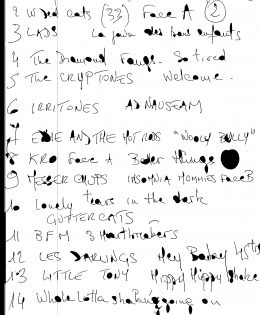 2 W red cats (33) Face A (2)
3 LADS La faim des bons enfants
4 The Diamond Fangs. So tired
5 The CRYPTONES Welcome.
6 IRRITONES AD NAUSEAM
7 EDDIE AND THE HOT RODS "WOOLY BULLY"
8 KRO Face A
9 MESSER CHUPS INSOMNIA MOMMIES FACE B
10 Lonely tears in the dark
GUTTERCATS
11 BFM 3
12 LES DARLINGS Hey Baby
13 LITTLE TONY Hippy Hippy Shake
14 Whole Lotta shaking going on